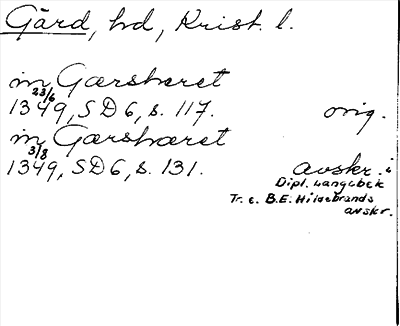 Gärd, hd, Krist. l.
in Gærshæret
23/6
1349, SD 6, s. 117. orig.
in Gærshæret
3/8
1349, SD 6, s. 131. avskr. i
Dipl. Langebek
Tr. e. B.E. Hildebrands
avskr.